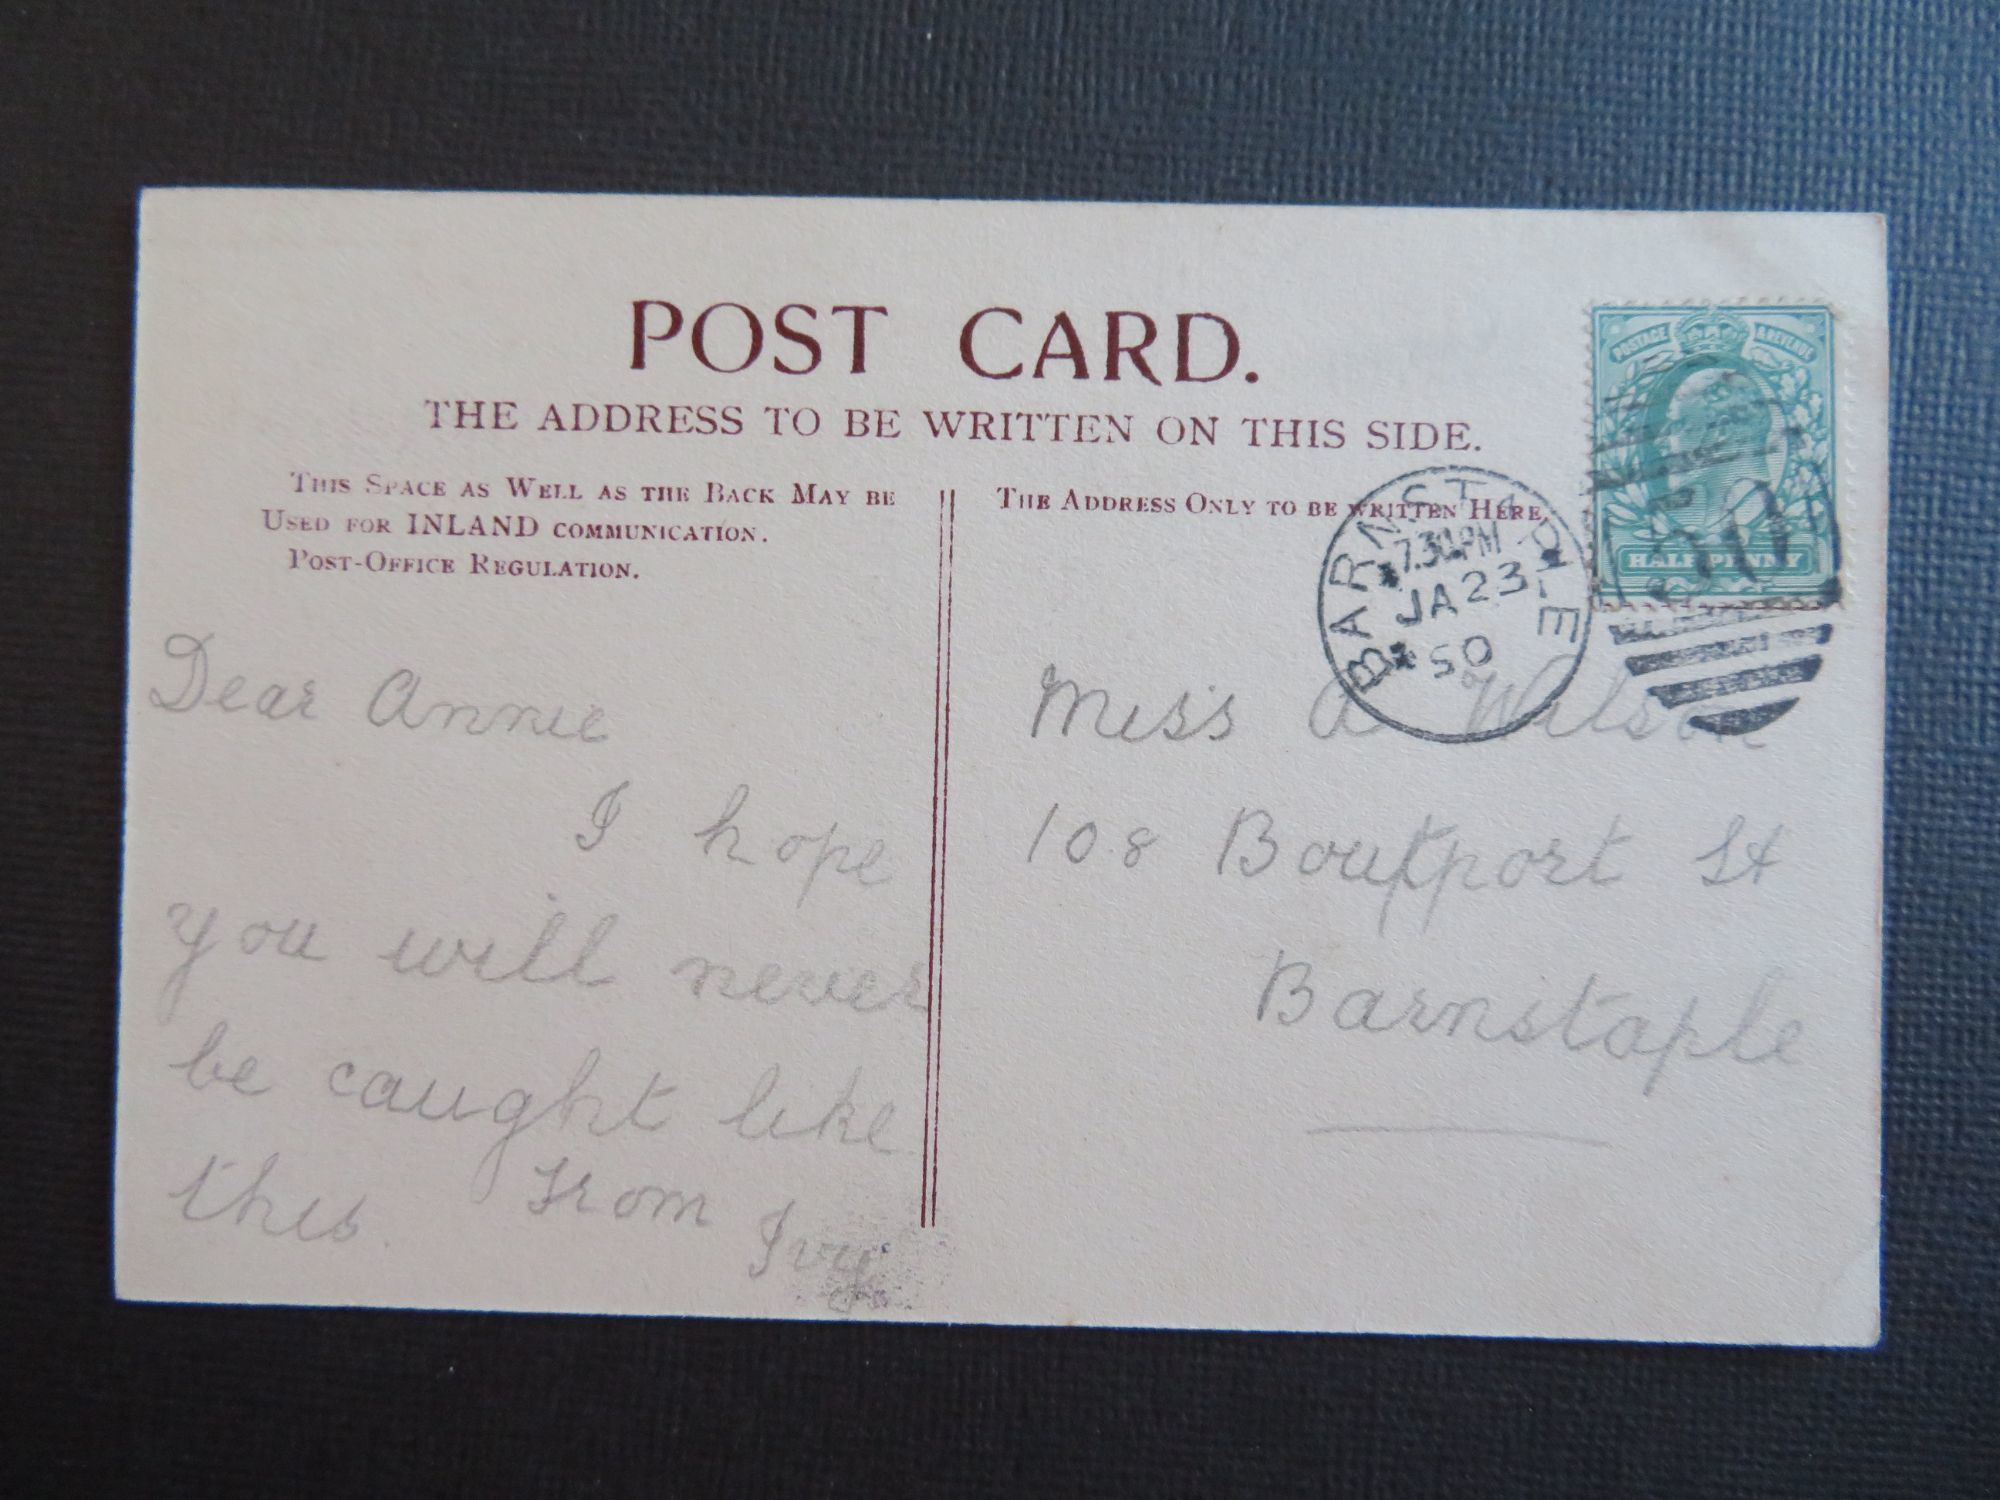 POST CARD.
THE ADDRESS TO BE WRITTEN ON THIS SIDE.
THIS SPACE AS WELL AS THE BACK MAY BE
USED FOR INLAND COMMUNICATION.
POST-OFFICE REGULATION.
Dear Annie
I hope
you will never
be caught like
this. From
Ivy
THE ADDRESS ONLY TO BE WRITTEN HERE
Miss A Wilson
108 Boutport St
Barnstaple
BARNSTAPLE
7.30PM
JA 23
POSTAGE & REVENUE
HALFPENNY